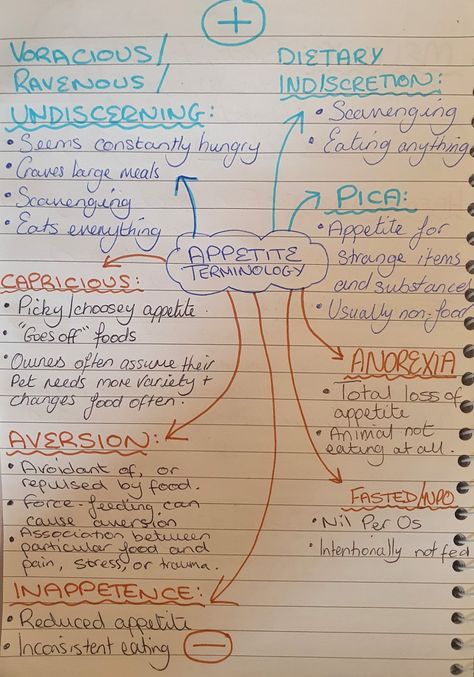 +
VORACIOUS/
RAVENOUS/
UNDISCERNING:
• Seems constantly hungry
• Craves large meals
• Scavenging
• Eats everything
DIETARY
INDISCRETION:
• Scavenging
• Eating anything
PICA:
• Appetite for
strange items
and substances
• Usually non-food
APPETITE
TERMINOLOGY
CAPRICIOUS:
• Picky/choosey appetite.
• "Goes off" foods
• Owners often assume their
pet needs more variety +
changes food often.
ANOREXIA
• Total loss of
appetite
• Animal not
eating at all.
AVERSION:
• Avoidant of, or
repulsed by food.
• Force-feeding can
cause aversion
• Association between
particular food and
pain, stress, or trauma.
FASTED/NPO
• Nil Per Os
• Intentionally not fed
INAPPETENCE:
• Reduced appetite
• Inconsistent eating
−